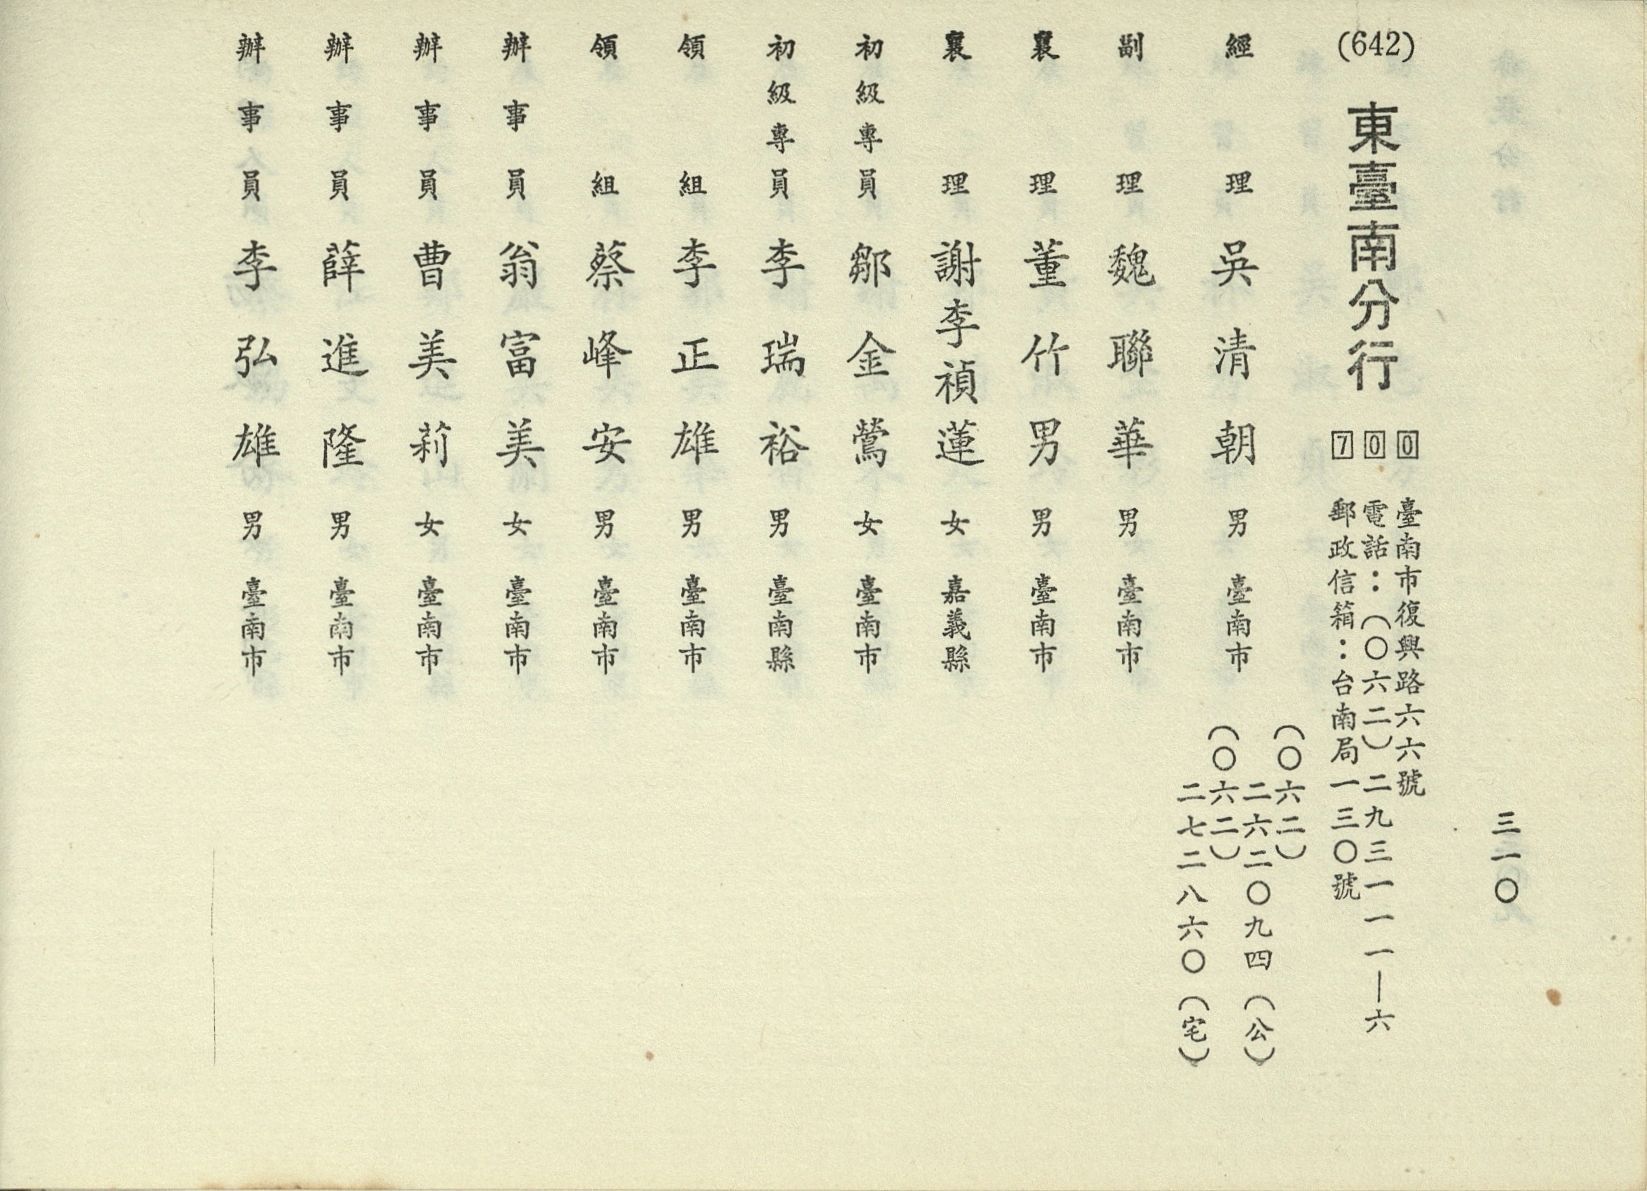 三一〇
(642) 東臺南分行 700
臺南市復興路六六號
電話：(〇六二)二九三一一一一—六
郵政信箱：台南局一三〇號
經理 吳清朝 男 臺南市
(〇六二)
二六二〇九四(公)
(〇六二)
二七二八六〇(宅)
副理 魏聯華 男 臺南市
襄理 董竹男 男 臺南市
襄理 謝李禎蓮 女 嘉義縣
初級專員 鄒金鶯 女 臺南市
初級專員 李瑞裕 男 臺南縣
領組 李正雄 男 臺南市
領組 蔡峰安 男 臺南市
辦事員 翁富美 女 臺南市
辦事員 曹美莉 女 臺南市
辦事員 薛進隆 男 臺南市
辦事員 李弘雄 男 臺南市